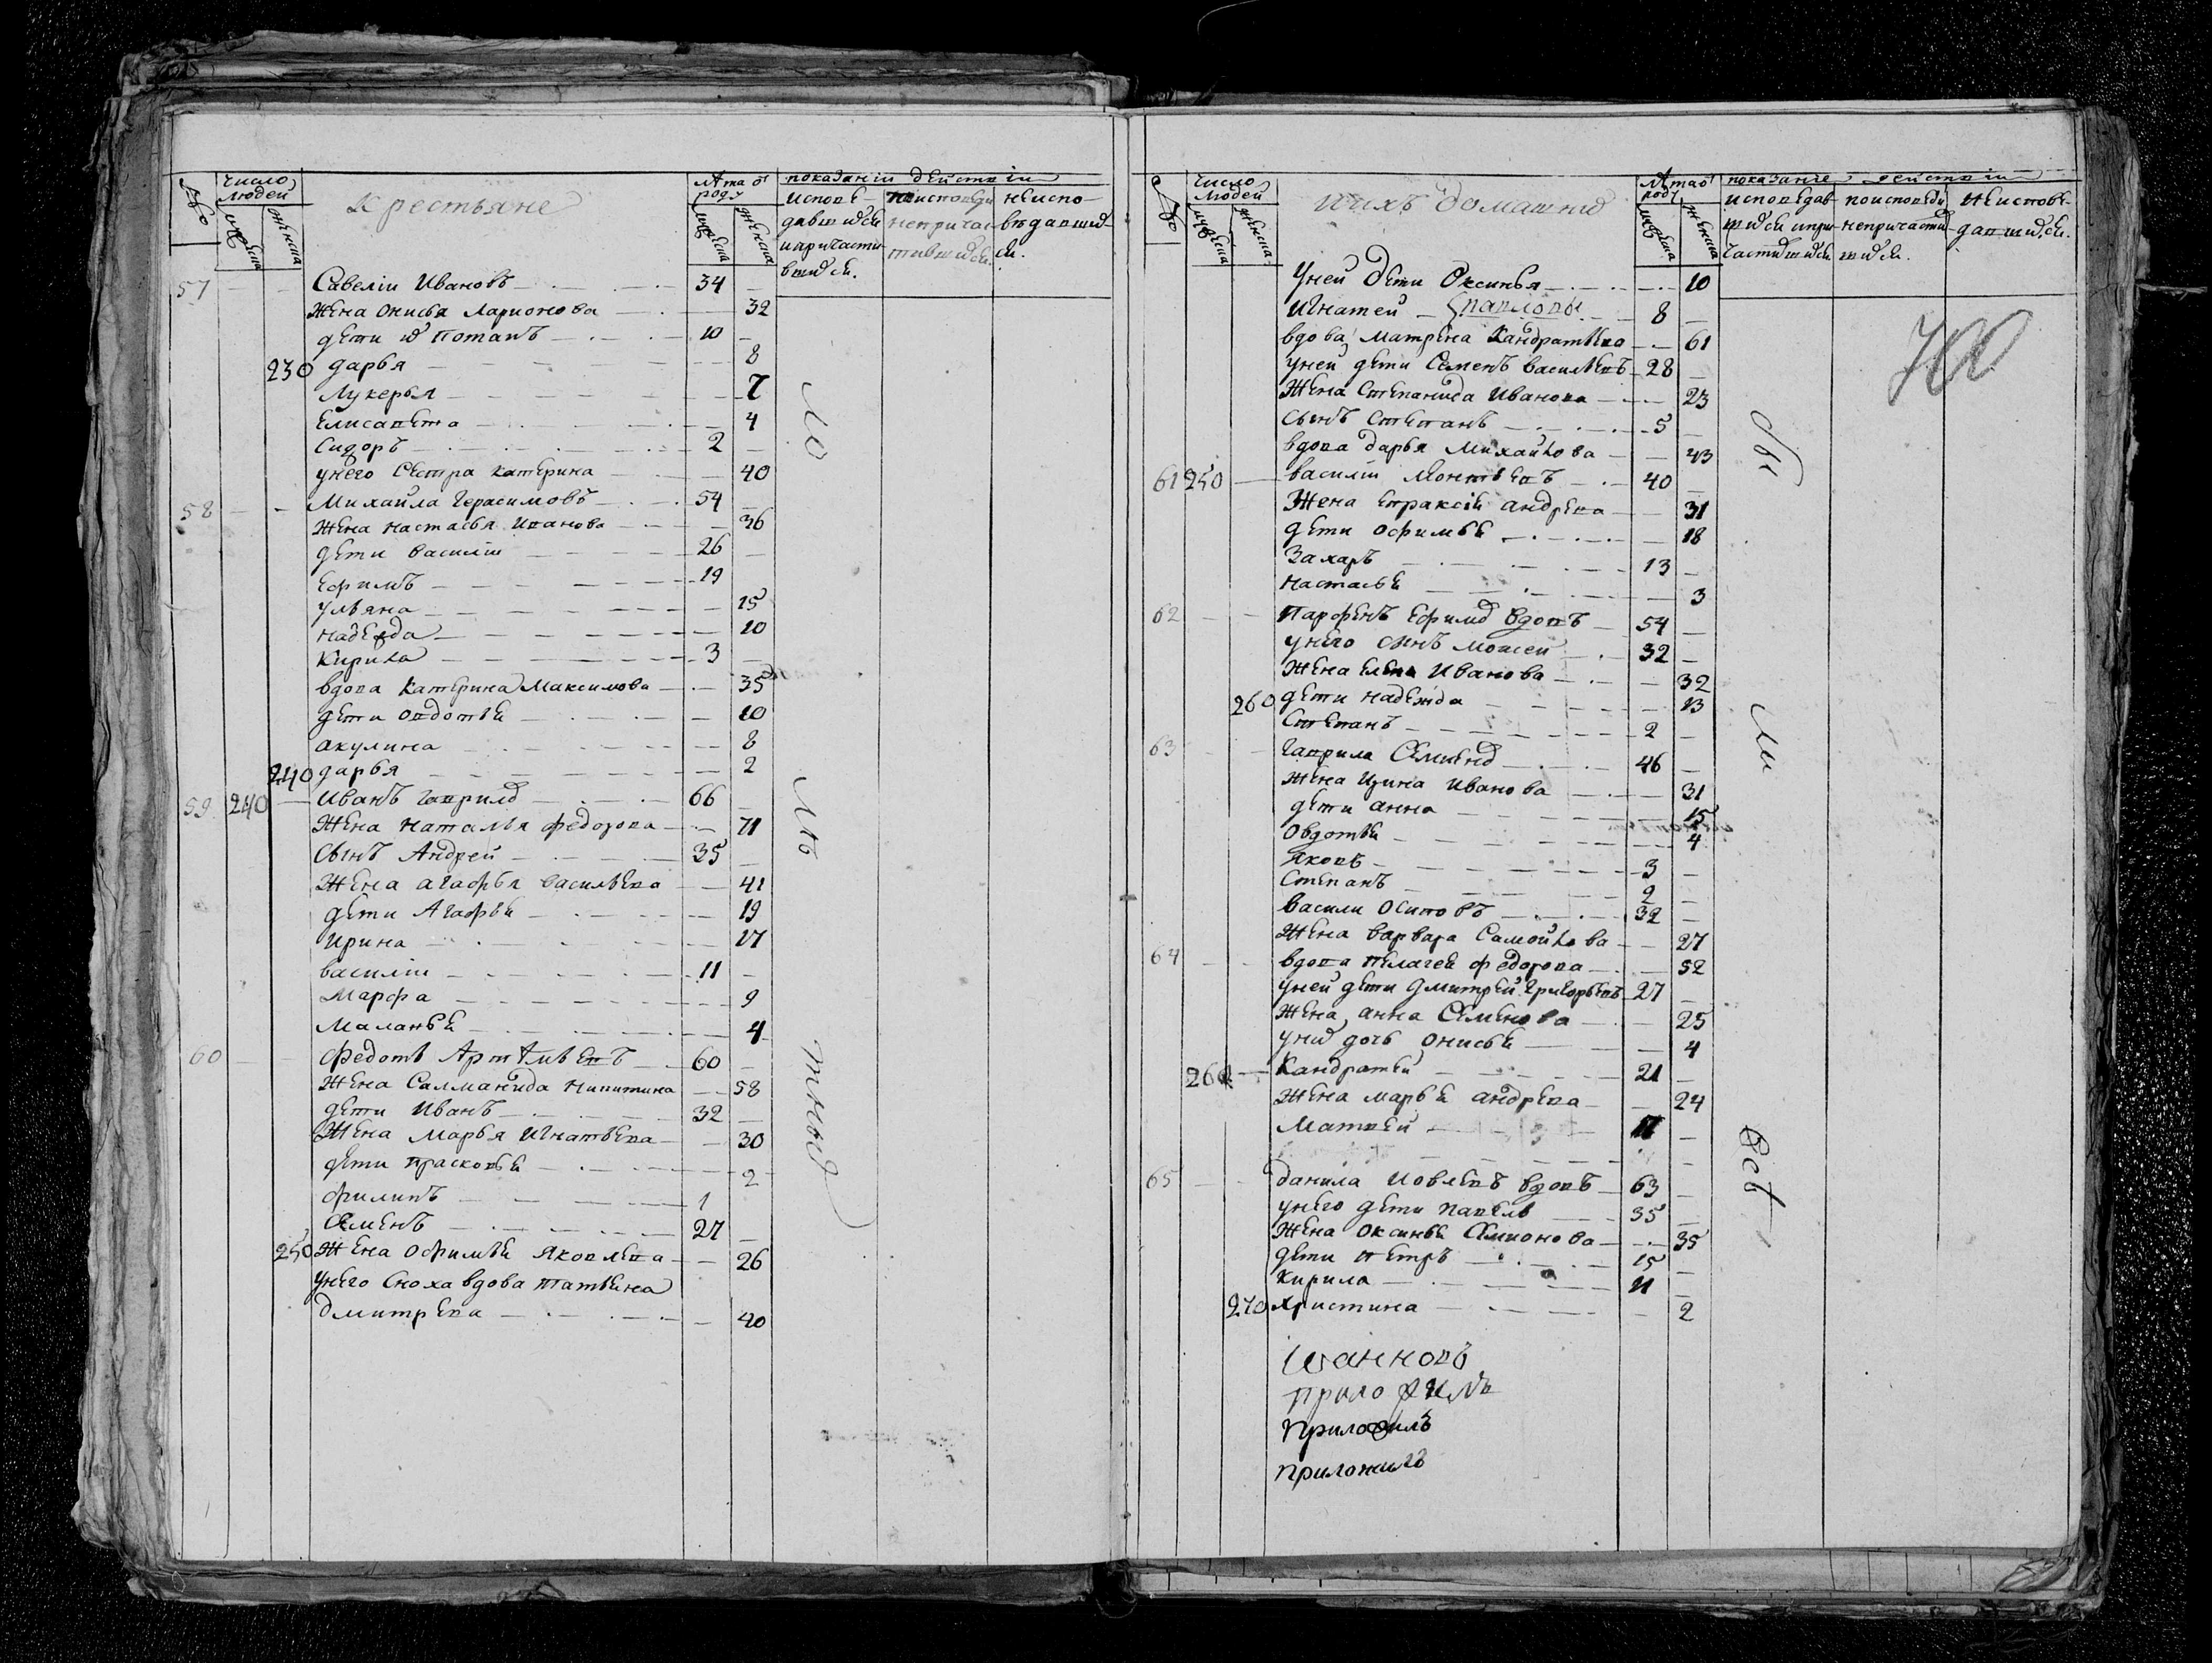 число людей
мужеска
женска
крестьяне
лѣта от роду
мужеска
женска
показаніи действіи
исповедавшихси и причастившихси.
поисповеди непричастившихси.
неисповедавшихси.
57 Савеліи Ивановъ 34
жена Онисья Ларионова 32
дети их Потапъ 10
230 дарья 8
Лукерья 7
Елисавета 4
Сидоръ 2
унего Сестра катерина 40
58 Михайла Герасимовъ 54
жена настасья иванова 36
дети василіи 26
Ефимъ 19
ульяна 15
надежда 10
Кирила 3
вдова катерина Максимова 35
дети овдотьи 10
акулина 8
240 дарья 2
59 240 Иванъ гаврилов 66
жена наталья федорова 71
сынъ Андрей 35
жена агафья васильева 41
дети Агафьи 19
ирина 17
василіи 11
Марфа 9
Маланьи 4
60 федотъ Артѣмьевъ 60
жена Салманида никитина 58
дети иванъ 32
жена Марья игнатьева 30
дети прасковьи 2
филипъ 1
Семенъ 27
250 жена офимьи яковлева 26
унего сноха вдова татьяна
дмитрева 40
число людей
мужеска
женска
ииxъ домашних
лѣта от роду
мужеска
женска
показание действіи
исповедавшихси и причастившихси
поисповеди непричастившихси.
неисповедавшихси.
уней дети Оксинья 10
игнатей павловы 8
вдова матрена кандратьева 61
уней дети Семенъ васильевъ 28
жена степанида иванова 23
сынъ степанъ 5
вдова дарья михайлова 43
61 250 василіи 40
жена епраксіи андрева 31
дети офимьи 18
захаръ 13
настасьи 3
62 парфенъ ефимов вдовъ 54
унего сынъ мосей 32
жена елена иванова 32
260 дети надежда 13
степанъ 2
63 гаврила Семенов 46
жена ирина иванова 31
дети анна 15
овдотьи 4
яковъ 3
степанъ 2
васили осиповъ 32
жена варвара Самойлова 27
64 вдова пелагеи федорова 52
уней дети дмитрей григорьевъ 27
жена анна Семенова 25
уних дочь онисьи 4
260 кандратеи 21
жена марьи андрева 24
матвеи 11
65 данила иовлевъ вдовъ 63
унего дети павелъ 35
жена оксиньи Симионова 35
дети петръ 15
кирила 11
270 христина 2
Іоанновъ
приложилъ
приложилъ
приложилъ